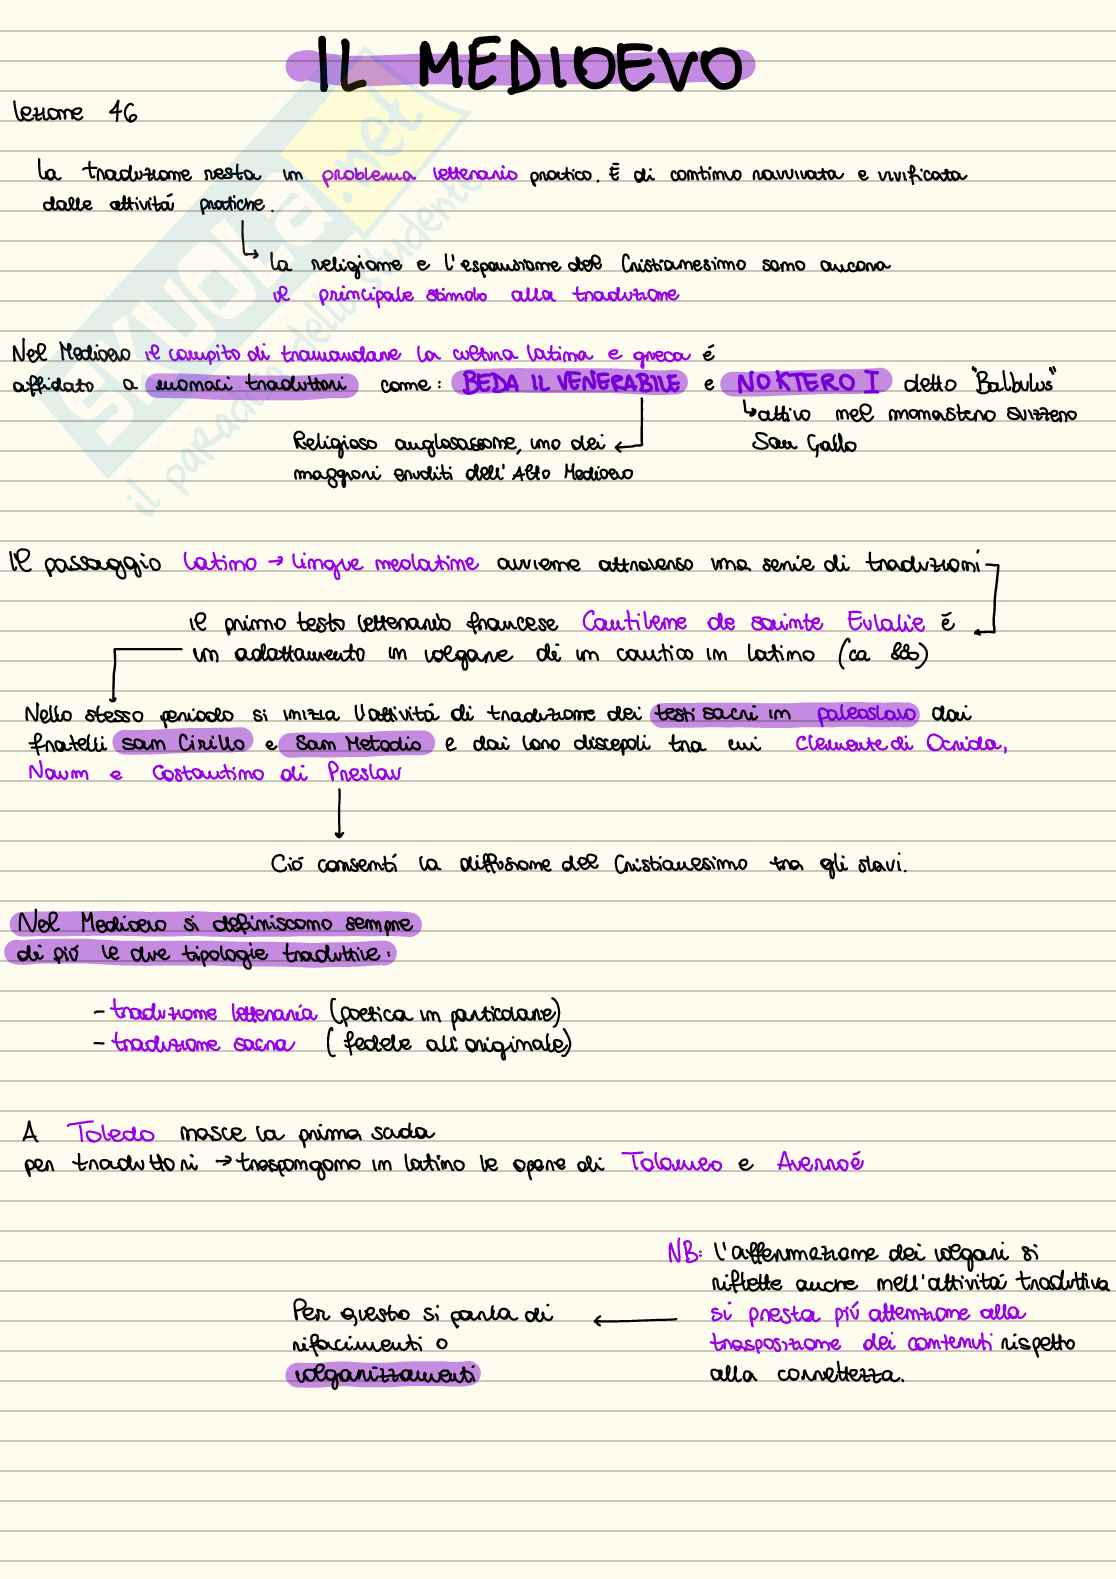 IL MEDIOEVO
lezione 46
La traduzione resta un problema letterario pratico. È di continuo ravvivata e vivificata
dalle attivitá pratiche.
La religione e l'espansione del Cristianesimo sono ancora
il principale stimolo alla traduzione
Nel Medioevo il compito di tramandare la cultura latina e greca é
affidato a monaci traduttori come: BEDA IL VENERABILE e NOKTERO I detto "Balbulus"
attivo nel monastero svizzero
San Gallo
Religioso anglosassone, uno dei
maggiori eruditi dell'Alto Medioevo
Il passaggio latino → lingue neolatine avviene attraverso una serie di traduzioni
il primo testo letterario francese Cantilene de sainte Eulalie é
un adattamento in volgare di un cantico in latino (ca 880)
Nello stesso periodo si inizia l'attivitá di traduzione dei testi sacri in paleoslavo dai
fratelli san Cirillo e San Metodio e dai loro discepoli tra cui Clemente di Ocrida,
Naum e Costantino di Preslav
Ció consentí la diffusione del Cristianesimo tra gli slavi.
Nel Medioevo si definiscono sempre
di piú le due tipologie traduttive:
- traduzione letteraria (poetica in particolare)
- traduzione sacra (fedele all'originale)
A Toledo nasce la prima scuola
per traduttori → traspongono in latino le opere di Tolomeo e Averroé
NB: l'affermazione dei volgari si
riflette anche nell'attivitá traduttiva
si presta piú attenzione alla
trasposizione dei contenuti rispetto
alla correttezza.
Per questo si parla di
rifacimenti o
volgarizzamenti
skuola.net
il paradiso dello studente